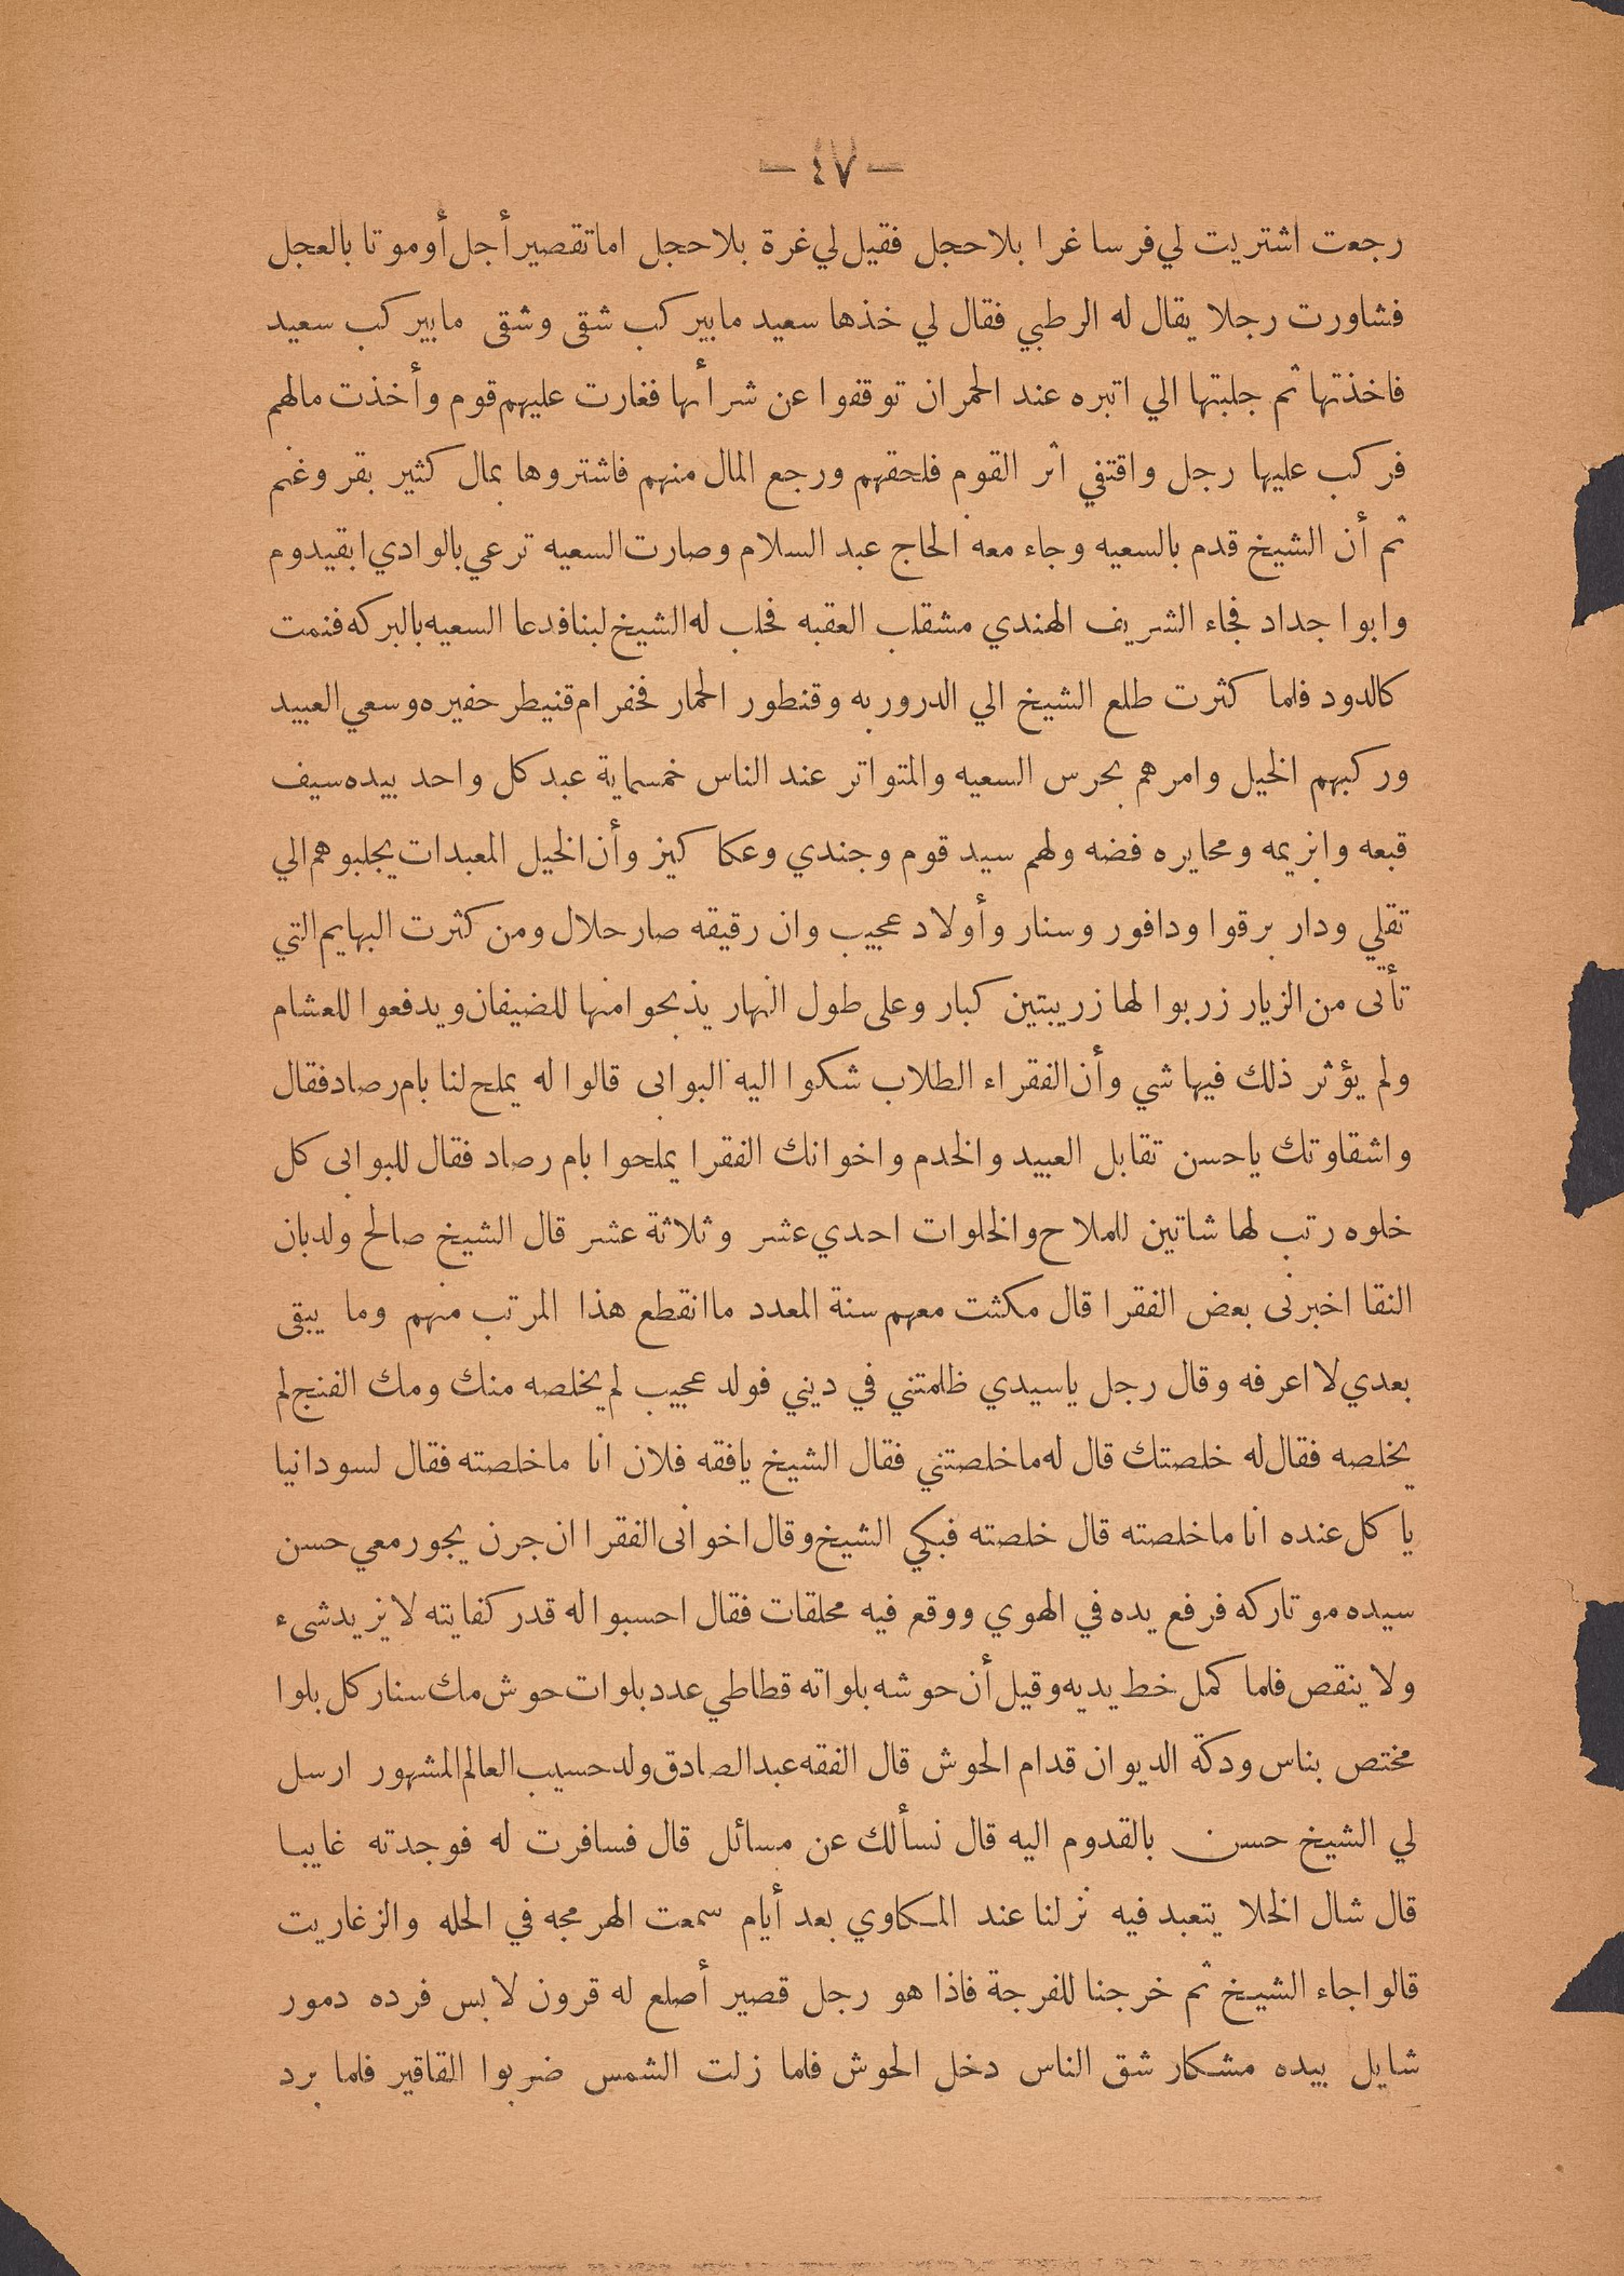 — ٤٧ —
رجعت اشتريت لي فرسا غرا بلا حجل فقيل لي غرة بلا حجل اما تقصير أجل أو موتا بالعجل
فشاورت رجلا يقال له الرطبي فقال لي خذها سعيد ما بير كب شقى وشقى ما بير كب سعيد
فاخذتها ثم جلبتها الي اتبره عند الحمران توقفوا عن شرأها فغارت عليهم قوم وأخذت مالهم
فركب عليها رجل واقتفي اثر القوم فلحقهم ورجع المال منهم فاشتروها بمال كثير بقر وغنم
ثم أن الشيخ قدم بالسعيه وجاء معه الحاج عبد السلام وصارت السعيه ترعي بالوادي ابقيدوم
وابوا جداد فجاء الشريف الهندي مشقلب العقبه فحلب له الشيخ لبنا فدعا السعيه بالبركه فنمت
كالدود فلما كثرت طلع الشيخ الي الدروربه وقنطور الحمار فحفر ام قنيطر حفيره وسعي العبيد
وركبهم الخيل وامرهم بحرس السعيه والمتواتر عند الناس خمسماية عبد كل واحد بيده سيف
قبعه وابزيمه ومحايره فضه ولهم سيد قوم وجندي وعكا كيز وأن الخيل المعبدات يجلبوهم الي
تقلي ودار برقوا ودافور وسنار وأولاد عجيب وان رقيقه صار حلال ومن كثرت البهايم التي
تأتى من الزيار زربوا لها زريبتين كبار وعلى طول النهار يذبحوا منها للضيفان ويدفعوا للعشام
ولم يؤثر ذلك فيها شي وأن الفقراء الطلاب شكوا اليه البوابى قالوا له يملح لنا بام رصاد فقال
واشقاوتك ياحسن تقابل العبيد والخدم واخوانك الفقرا يملحوا بام رصاد فقال للبوابى كل
خلوه رتب لها شاتين للملاح والخلوات احدي عشر وثلاثة عشر قال الشيخ صالح ولد بان
النقا اخبرنى بعض الفقرا قال مكثت معهم سنة المعدد ما انقطع هذا المرتب منهم وما يبقى
بعدي لا اعرفه وقال رجل ياسيدي ظلمتني في ديني فولد عجيب لم يخلصه منك ومك الفنج لم
يخلصه فقال له خلصتك قال له ما خلصتني فقال الشيخ يافقه فلان انا ما خلصته فقال لسودانيا
يا كل عنده انا ما خلصته قال خلصته فبكي الشيخ وقال اخوانى الفقرا ان جرن يجور معي حسن
سيده مو تاركه فرفع يده في الهوي ووقع فيه محلقات فقال احسبوا له قدر كفايته لا يزيد شىء
ولا ينقص فلما كمل خط يديه وقيل أن حوشه بلواته قطاطي عدد بلوات حوش مك سنار كل بلوا
مختص بناس ودكة الديوان قدام الحوش قال الفقه عبد الصادق ولد حسيب العالم المشهور ارسل
لي الشيخ حسن بالقدوم اليه قال نسألك عن مسائل قال فسافرت له فوجدته غايبا
قال شال الخلا يتعبد فيه نزلنا عند المكاوي بعد أيام سمعت الهرمجه في الحله والزغاريت
قالوا جاء الشيخ ثم خرجنا للفرجة فاذا هو رجل قصير أصلع له قرون لابس فرده دمور
شايل بيده مشكار شق الناس دخل الحوش فلما زلت الشمس ضربوا القاقير فلما برد